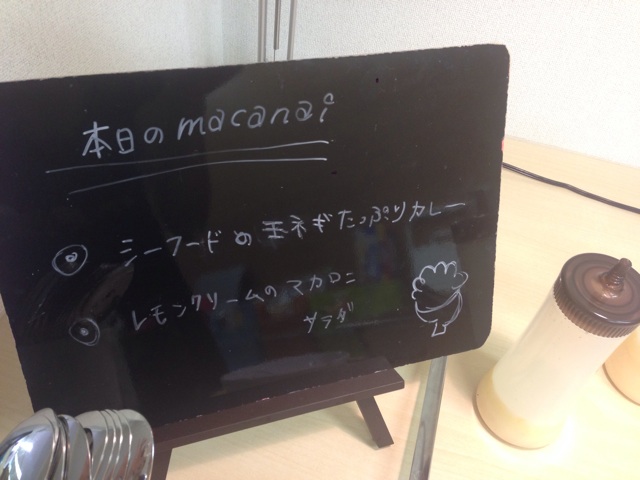 本日のmacanai
シーフードの玉ネギたっぷりカレー
レモンクリームのマカロニ
サラダ